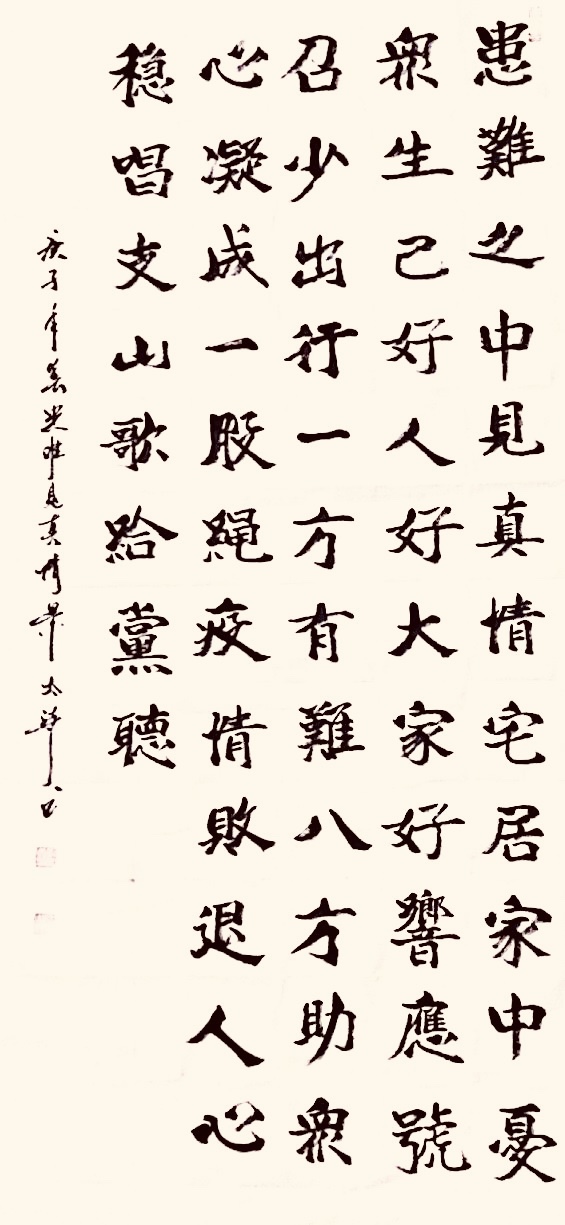 患難之中見真情宅居家中憂
衆生己好人好大家好響應號
召少出行一方有難八方助衆
心凝成一股繩疫情敗退人心
稳唱支山歌給黨聽
庚子年唯見真情